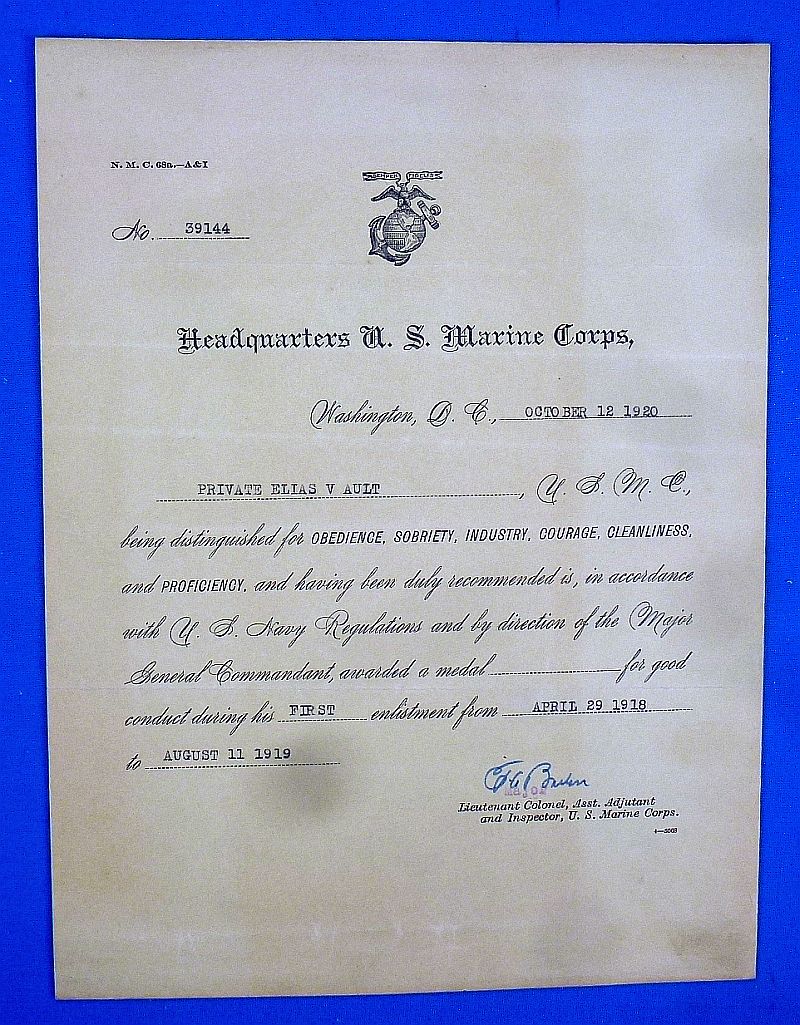 N. M. C. 68a.—A&I
SEMPER FIDELIS
No. 39144
Headquarters U. S. Marine Corps,
Washington, D. C., OCTOBER 12 1920
PRIVATE ELIAS V AULT, U. S. M. C.,
being distinguished for OBEDIENCE, SOBRIETY, INDUSTRY, COURAGE, CLEANLINESS,
and PROFICIENCY, and having been duly recommended is, in accordance
with U. S. Navy Regulations and by direction of the Major
General Commandant, awarded a medal for good
conduct during his FIRST enlistment from APRIL 29 1918
to AUGUST 11 1919
Major
Lieutenant Colonel, Asst. Adjutant
and Inspector, U. S. Marine Corps.